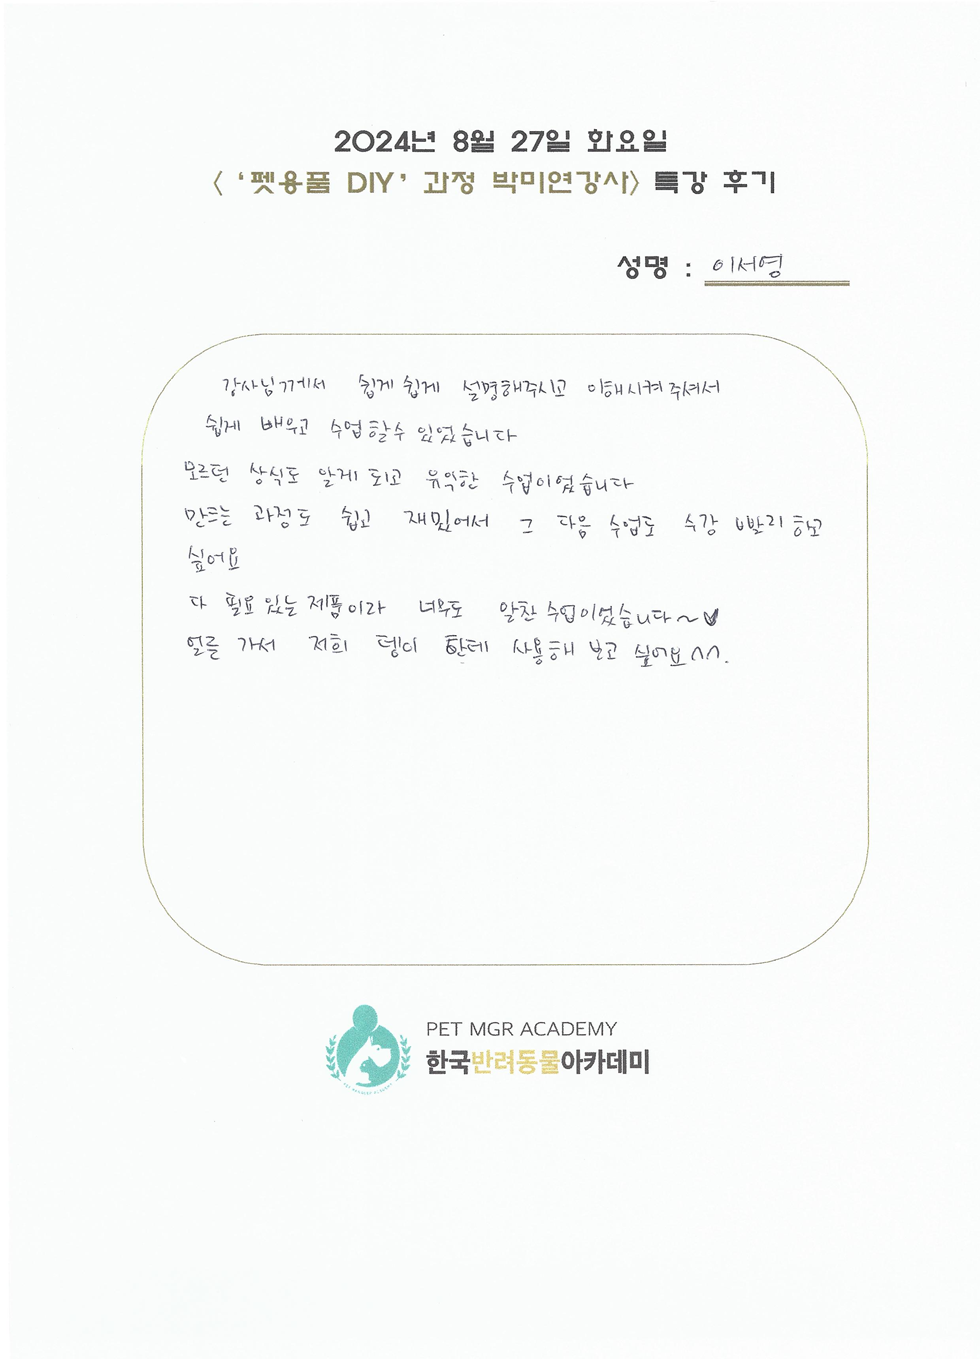 2024년 8월 27일 화요일
< '펫용품 DIY' 과정 박미연강사> 특강 후기
성명 : 이서영
강사님께서 쉽게 쉽게 설명해주시고 이해시켜주셔서
쉽게 배우고 수업할수 있었습니다
모르던 상식도 알게 되고 유익한 수업이였습니다
만드는 과정도 쉽고 재밌어서 그 다음 수업도 수강 빨리 하고
싶어요
다 필요있는 제품이라 너무도 알찬 수업이었습니다~♥
얼른 가서 저희 댕이 한테 사용해 보고 싶어요^^.
PET MGR ACADEMY
한국반려동물아카데미